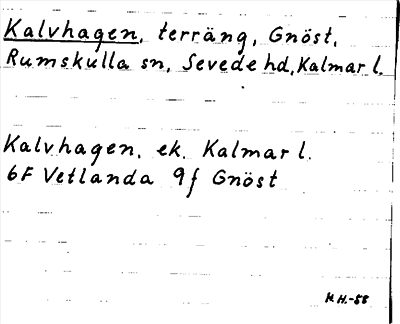 Kalvhagen, terräng, Gnöst,
Rumskulla sn, Sevede hd, Kalmar l.
Kalvhagen. ek. Kalmar l.
6F Vetlanda 9f Gnöst
M H.-58